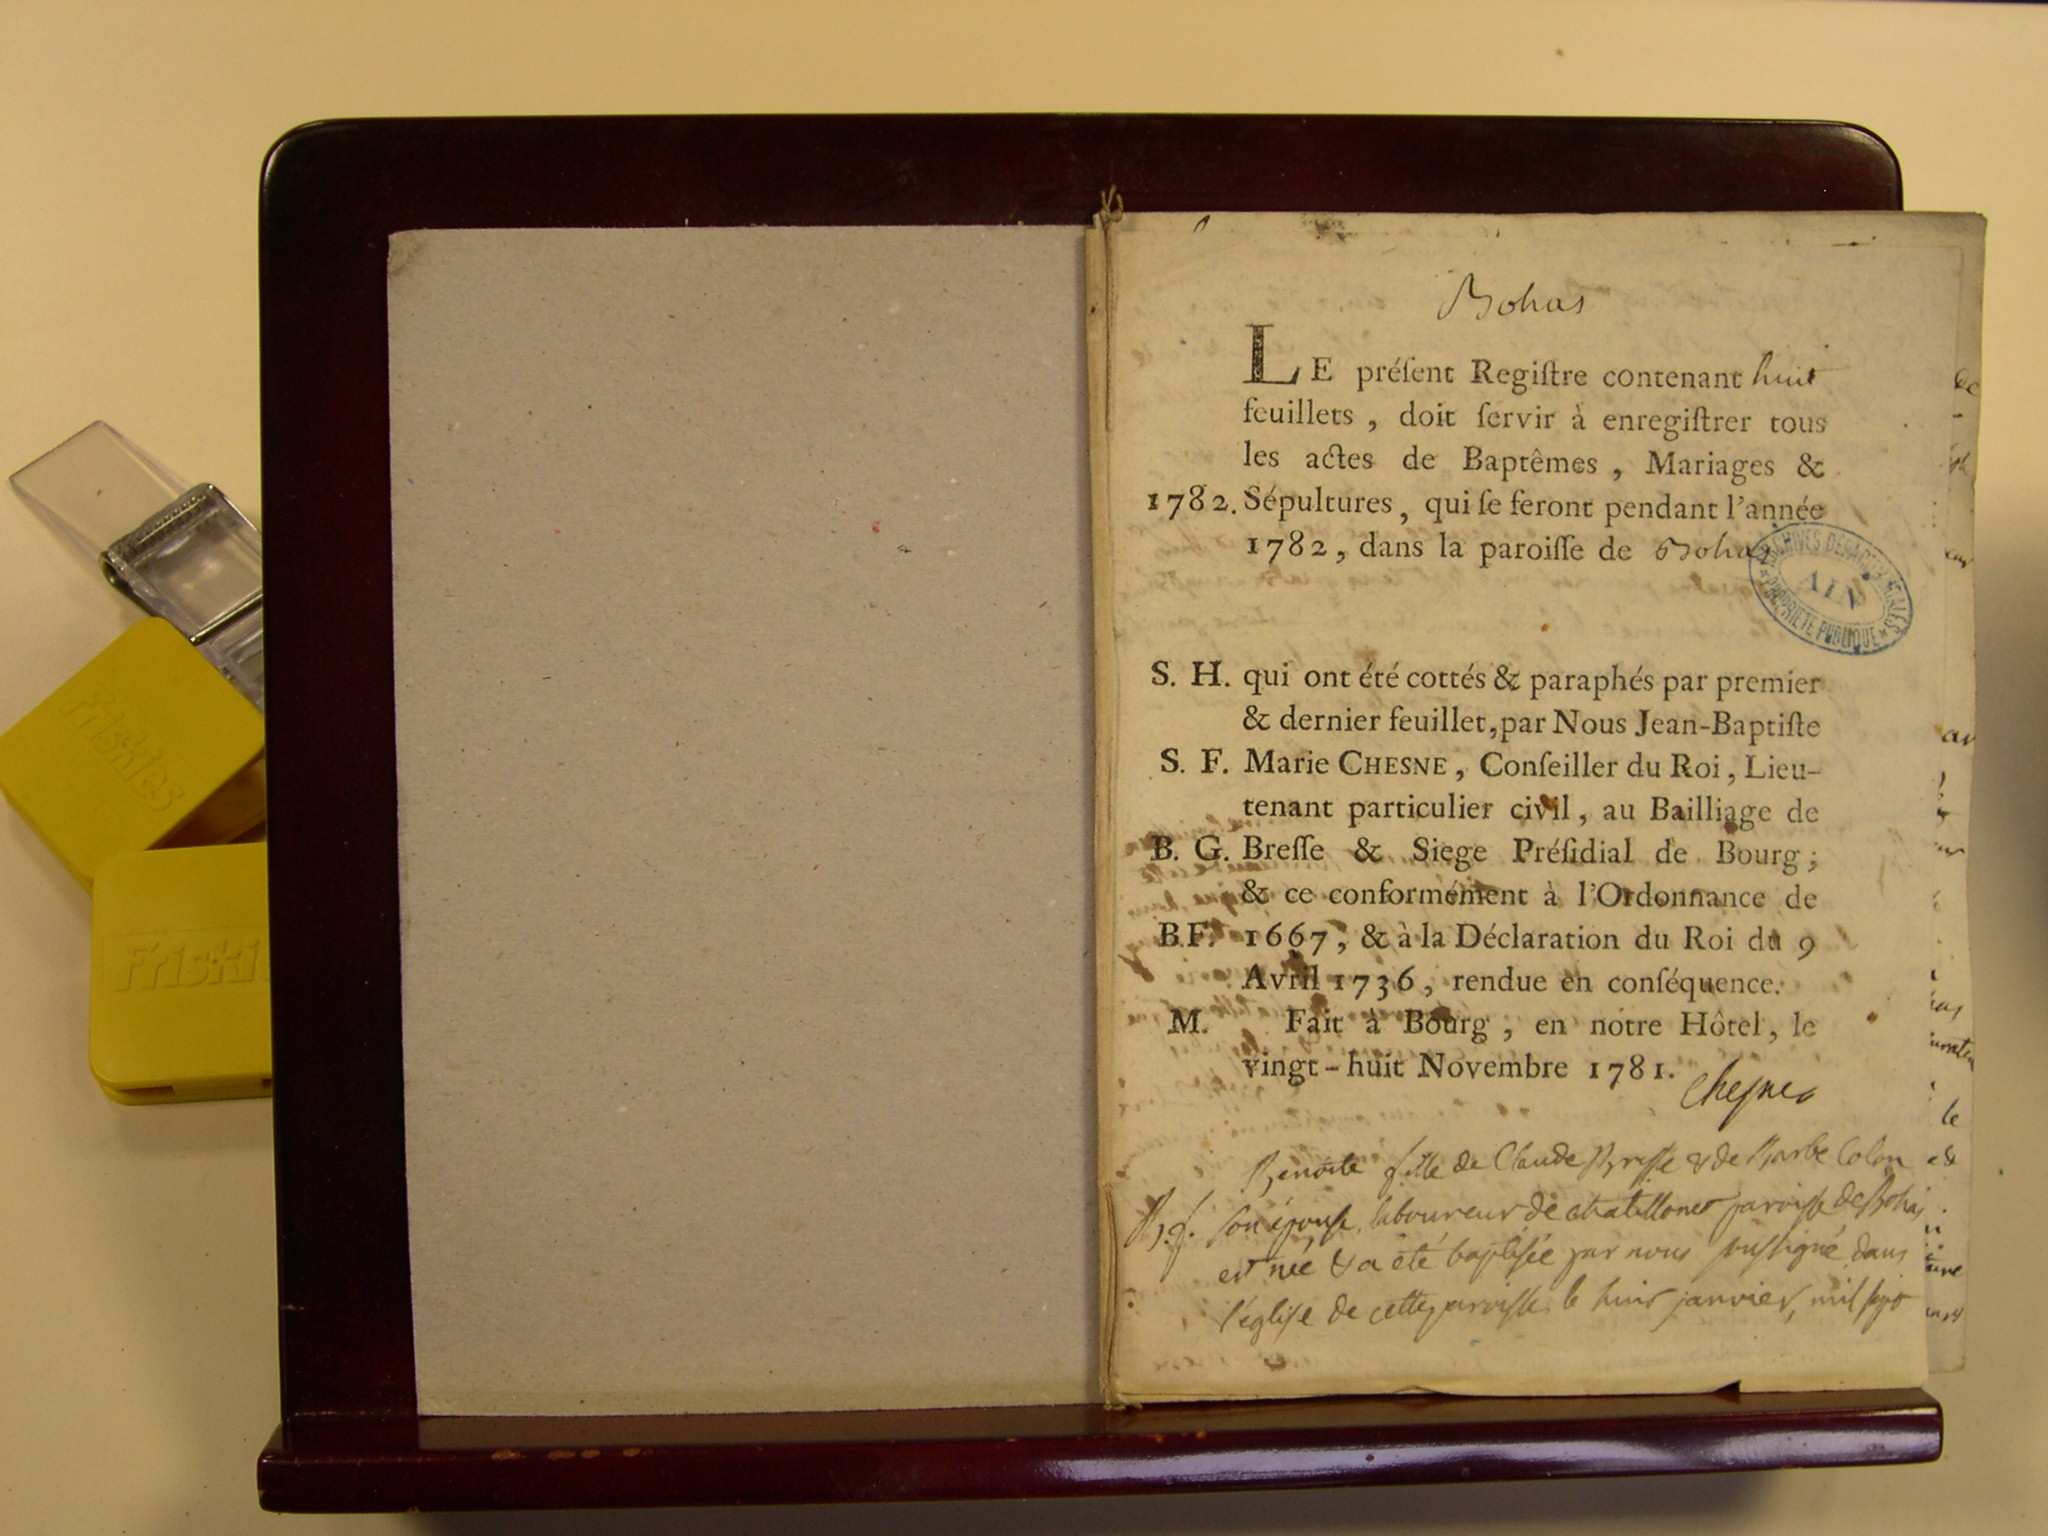 Bohas
LE préſent Regiſtre contenant huit
feuillets , doit ſervir à enregiſtrer tous
les actes de Baptêmes , Mariages &
1782. Sépultures , qui ſe feront pendant l'année
1782 , dans la paroiſſe de Bohas
ARCHIVES DEPARTEMENTALES
AIN
PROPRIETE PUBLIQUE
S. H. qui ont été cottés & paraphés par premier
& dernier feuillet, par Nous Jean-Baptiſte
S. F. Marie CHESNE , Conſeiller du Roi , Lieu-
tenant particulier civil , au Bailliage de
B. G. Breſſe & Siege Préſidial de Bourg ;
& ce conformément à l'Ordonnance de
B.F. 1667 , & à la Déclaration du Roi du 9
Avril 1736 , rendue en conſéquence.
M. Fait à Bourg , en notre Hôtel , le
vingt-huit Novembre 1781.
Chesne
Benoite fille de Claude & de Barbe Colon
B. f. son épouse laboureur de paroisse de Bohas
est née & a été baptisée par nous soussigné dans
l'église de cette paroisse le huit janvier, mil sept
Friskies
Friski